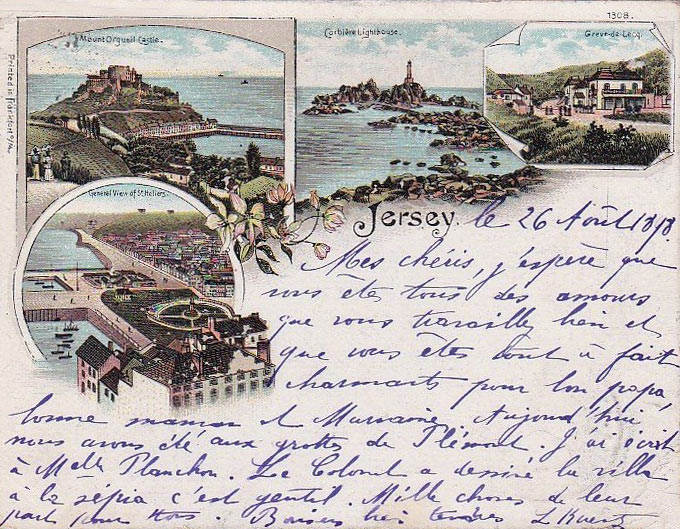 1308.
Mount Orgueil Castle.
Corbière Lighthouse.
Greve-de-Lecq.
Printed in Frankfort o/M.
General View of St Heliers.
Jersey. le 26 Août 1898.
Mes chéris, j'espère que
vous êtes tous des amours
que vous travaillez bien et
que vous êtes tout à fait
charmants pour bon papa,
bonne maman et Marraine. Aujourd'hui
nous avons été aux grottes de Plémont. J'ai écrit
à Melle Planchon. Le Colonel a dessiné la villa
à la sépia c'est gentil. Mille choses de leur
part pour tous. Baisers bien tendres